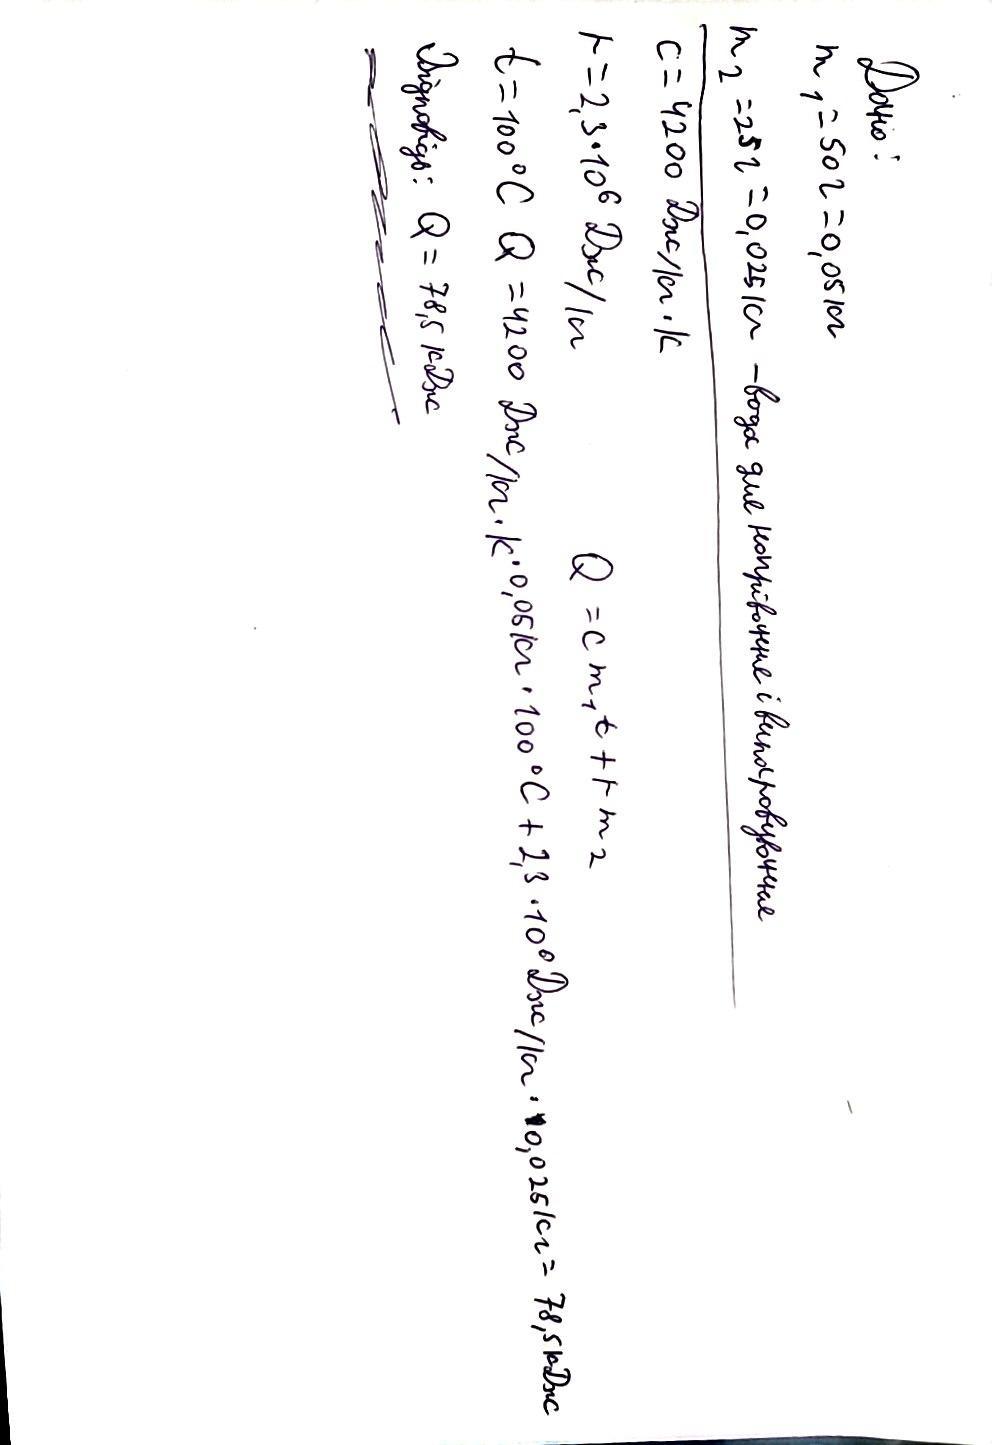 Дано:
m₁ = 50 г = 0,05 кг
m₂ = 25 г = 0,025 кг – вода для нагрівання і випаровування
c = 4200 Дж/кг·К
r = 2,3·10⁶ Дж/кг
Q = c m₁ t + r m₂
t = 100°C Q = 4200 Дж/кг·К·0,05 кг·100°C + 2,3·10⁶ Дж/кг·0,025 кг = 78,5 кДж
Відповідь: Q = 78,5 кДж